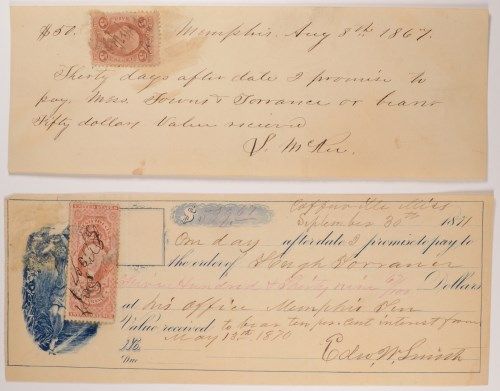 $50. Memphis. Aug 8th 1867.
Thirty days after date I promise to
pay Mess. Towns & Torrance or bearer
Fifty dollars Value recieved
S. McKee.
Coffeeville Miss
September 30th 1871
One day after date I promise to pay to
the order of Hugh Torrance
Hundred & thirty nine 67 Dollars
at his Office Memphis Ten
Value received to bear ten per cent interest from
May 13th 1870
No.
Due
Edw. W. Smith